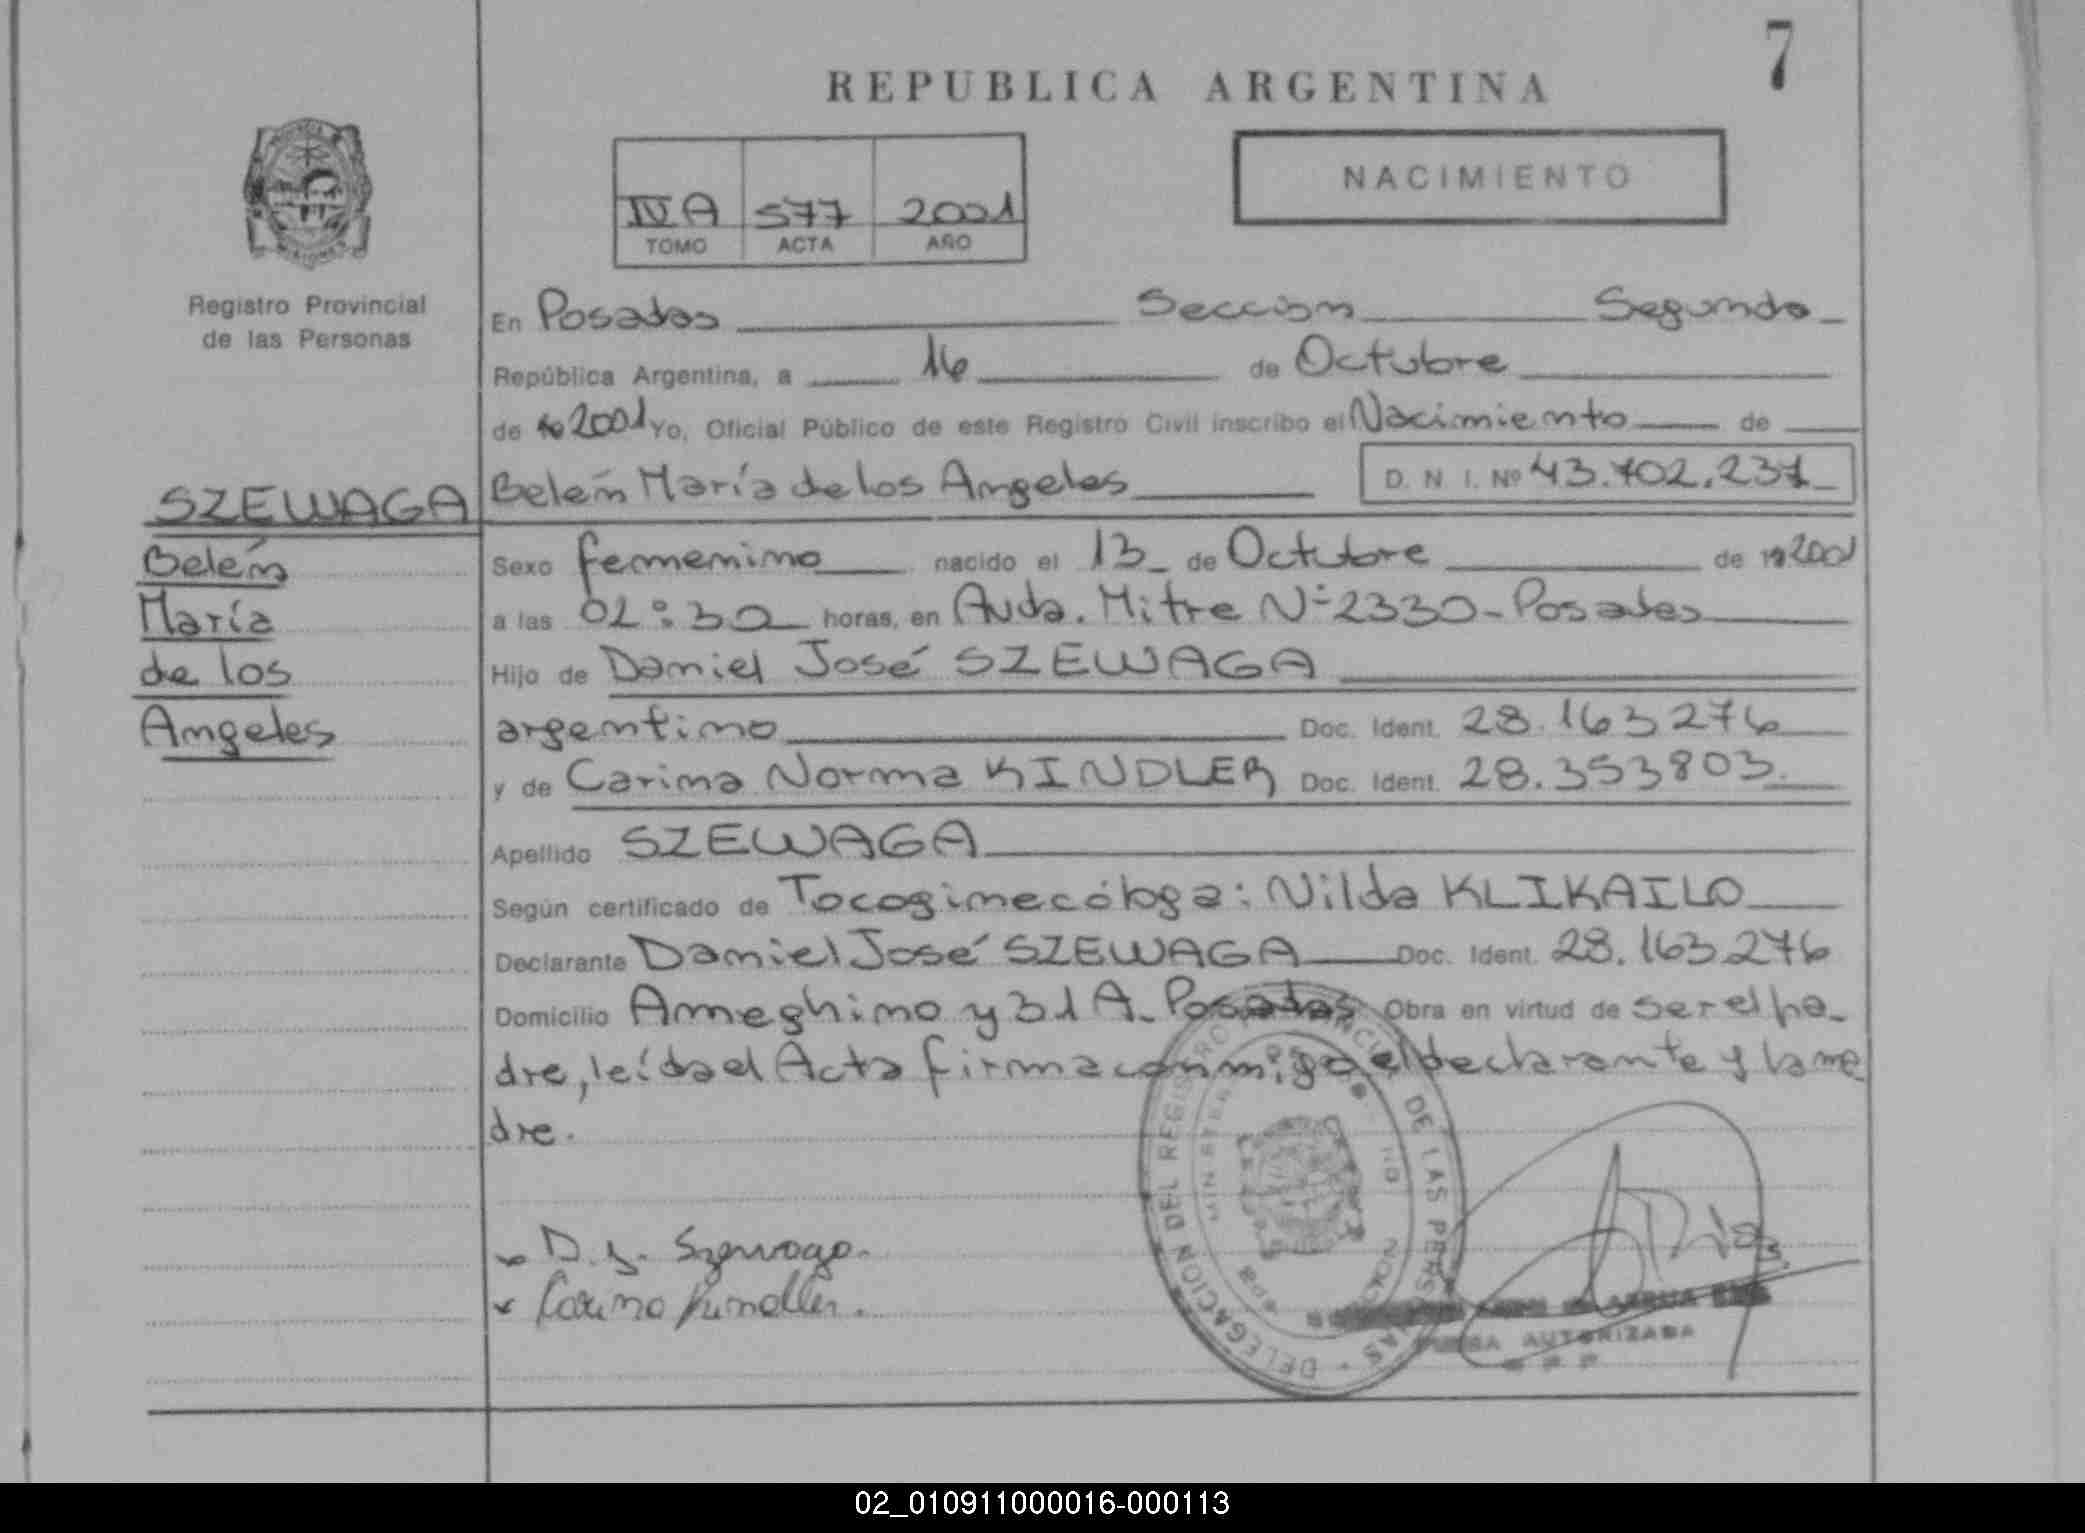 7
REPUBLICA ARGENTINA
NACIMIENTO
IV A 577 2001
TOMO ACTA AÑO
Registro Provincial
de las Personas
En Posadas Seccion Segunda
República Argentina, a 16 de Octubre
de 19 2001 Yo, Oficial Público de este Registro Civil inscribo el Nacimiento de
Belén María de los Angeles D. N. I. Nº 43.702.237
SZEWAGA
Belén
María
de los
Angeles
Sexo femenino nacido el 13 de Octubre de 19 2001
a las 02:30 horas, en Avda. Mitre Nº 2330 - Posadas
Hijo de Daniel José SZEWAGA
argentino Doc. Ident. 28.163276
y de Carina Norma KINDLER Doc. Ident. 28.353803.
Apellido SZEWAGA
Según certificado de Tocoginecóloga: Nilda KLIKAILO
Declarante Daniel José SZEWAGA Doc. Ident. 28.163.276
Domicilio Ameghino y 31 A. Posadas Obra en virtud de ser el pa-
dre, leída el Acta firma conmigo el declarante y la ma
dre.
D. J. Szewaga.
DELEGACION DEL REGISTRO DE LAS PERSONAS
AUTORIZADA
02_010911000016-000113